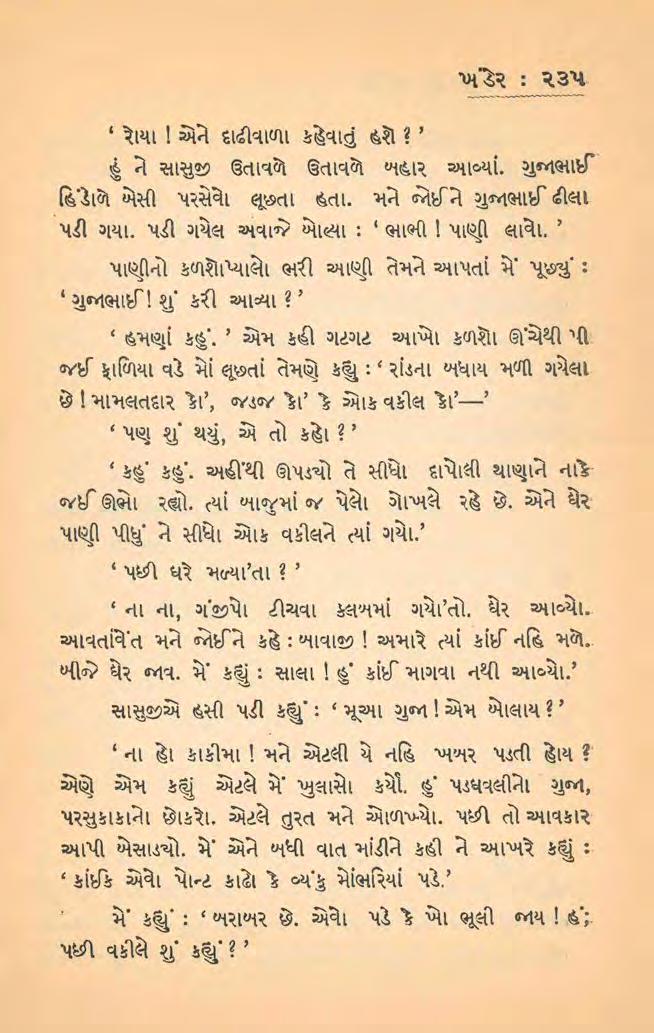 ખંડેર : ૨૩૫
‘ રોયા ! એને દાઢીવાળા કહેવાતું હશે ? ’
હું ને સાસુજી ઉતાવળે ઉતાવળે બહાર આવ્યાં. ગુજાભાઈ
હિંડોળે બેસી પરસેવો લૂછતા હતા. મને જોઈને ગુજાભાઈ ઢીલા
પડી ગયા. પડી ગયેલ અવાજે બોલ્યા : ‘ ભાભી ! પાણી લાવો. ’
પાણીનો કળશોપ્યાલો ભરી આણી તેમને આપતાં મેં પૂછ્યું :
‘ ગુજાભાઈ ! શું કરી આવ્યા ? ’
‘ હમણાં કહું. ’ એમ કહી ગટગટ આખો કળશો ઊંચેથી પી
જઈ ફાળિયા વડે મોં લૂછતાં તેમણે કહ્યું : ‘ રાંડના બધાય મળી ગયેલા
છે ! મામલતદાર કો’, જડજ કો’ કે ઓક વકીલ કો’—’
‘ પણ શું થયું, એ તો કહો ? ’
‘ કહું કહું. અહીંથી ઊપડ્યો તે સીધો દાપોલી થાણાને નાકે
જઈ ઊભો રહ્યો. ત્યાં બાજુમાં જ પેલો ગોખલે રહે છે. એને ઘેર
પાણી પીધું ને સીધો ઓક વકીલને ત્યાં ગયો.’
‘ પછી ઘરે મળ્યા’તા ? ’
‘ ના ના, ગંજીપો ટીચવા કલબમાં ગયો’તો. ઘેર આવ્યો.
આવતાંવેંત મને જોઈને કહે : બાવાજી ! અમારે ત્યાં કાંઈ નહિ મળે.
બીજે ઘેર જાવ. મેં કહ્યું : સાલા ! હું કાંઈ માગવા નથી આવ્યો.’
સાસુજીએ હસી પડી કહ્યું : ‘ મૂઆ ગુજા ! એમ બોલાય ? ’
‘ ના હો કાકીમા ! મને એટલી યે નહિ ખબર પડતી હોય ?
એણે એમ કહ્યું એટલે મેં ખુલાસો કર્યો. હું પડઘવલીનો ગુજા,
પરસુકાકાનો છોકરો. એટલે તુરત મને ઓળખ્યો. પછી તો આવકાર
આપી બેસાડ્યો. મેં એને બધી વાત માંડીને કહી ને આખરે કહ્યું :
‘ કાંઈક એવો પોન્ટ કાઢો કે વ્યંકુ મોંભરિયાં પડે.’
મેં કહ્યું : ‘ બરાબર છે. એવો પડે કે ખો ભૂલી જાય ! હં;
પછી વકીલે શું કહ્યું ? ’